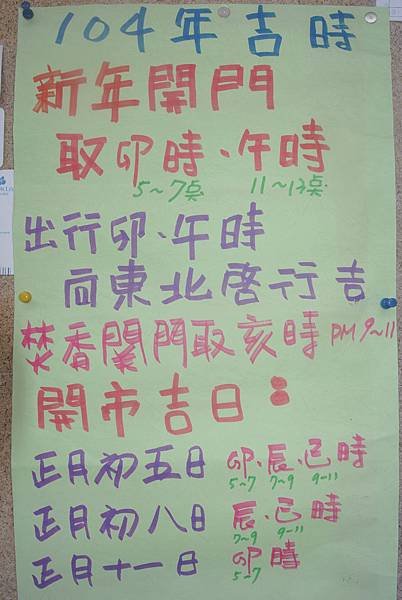 104年吉時
新年開門
取卯時、午時
5~7点 11~13点
出行卯、午時
向東北啓行吉
焚香關門取亥時 PM 9~11
開市吉日：
正月初五日 卯、辰、巳時
5~7 7~9 9~11
正月初八日 辰、巳時
7~9 9~11
正月十一日 卯時
5~7